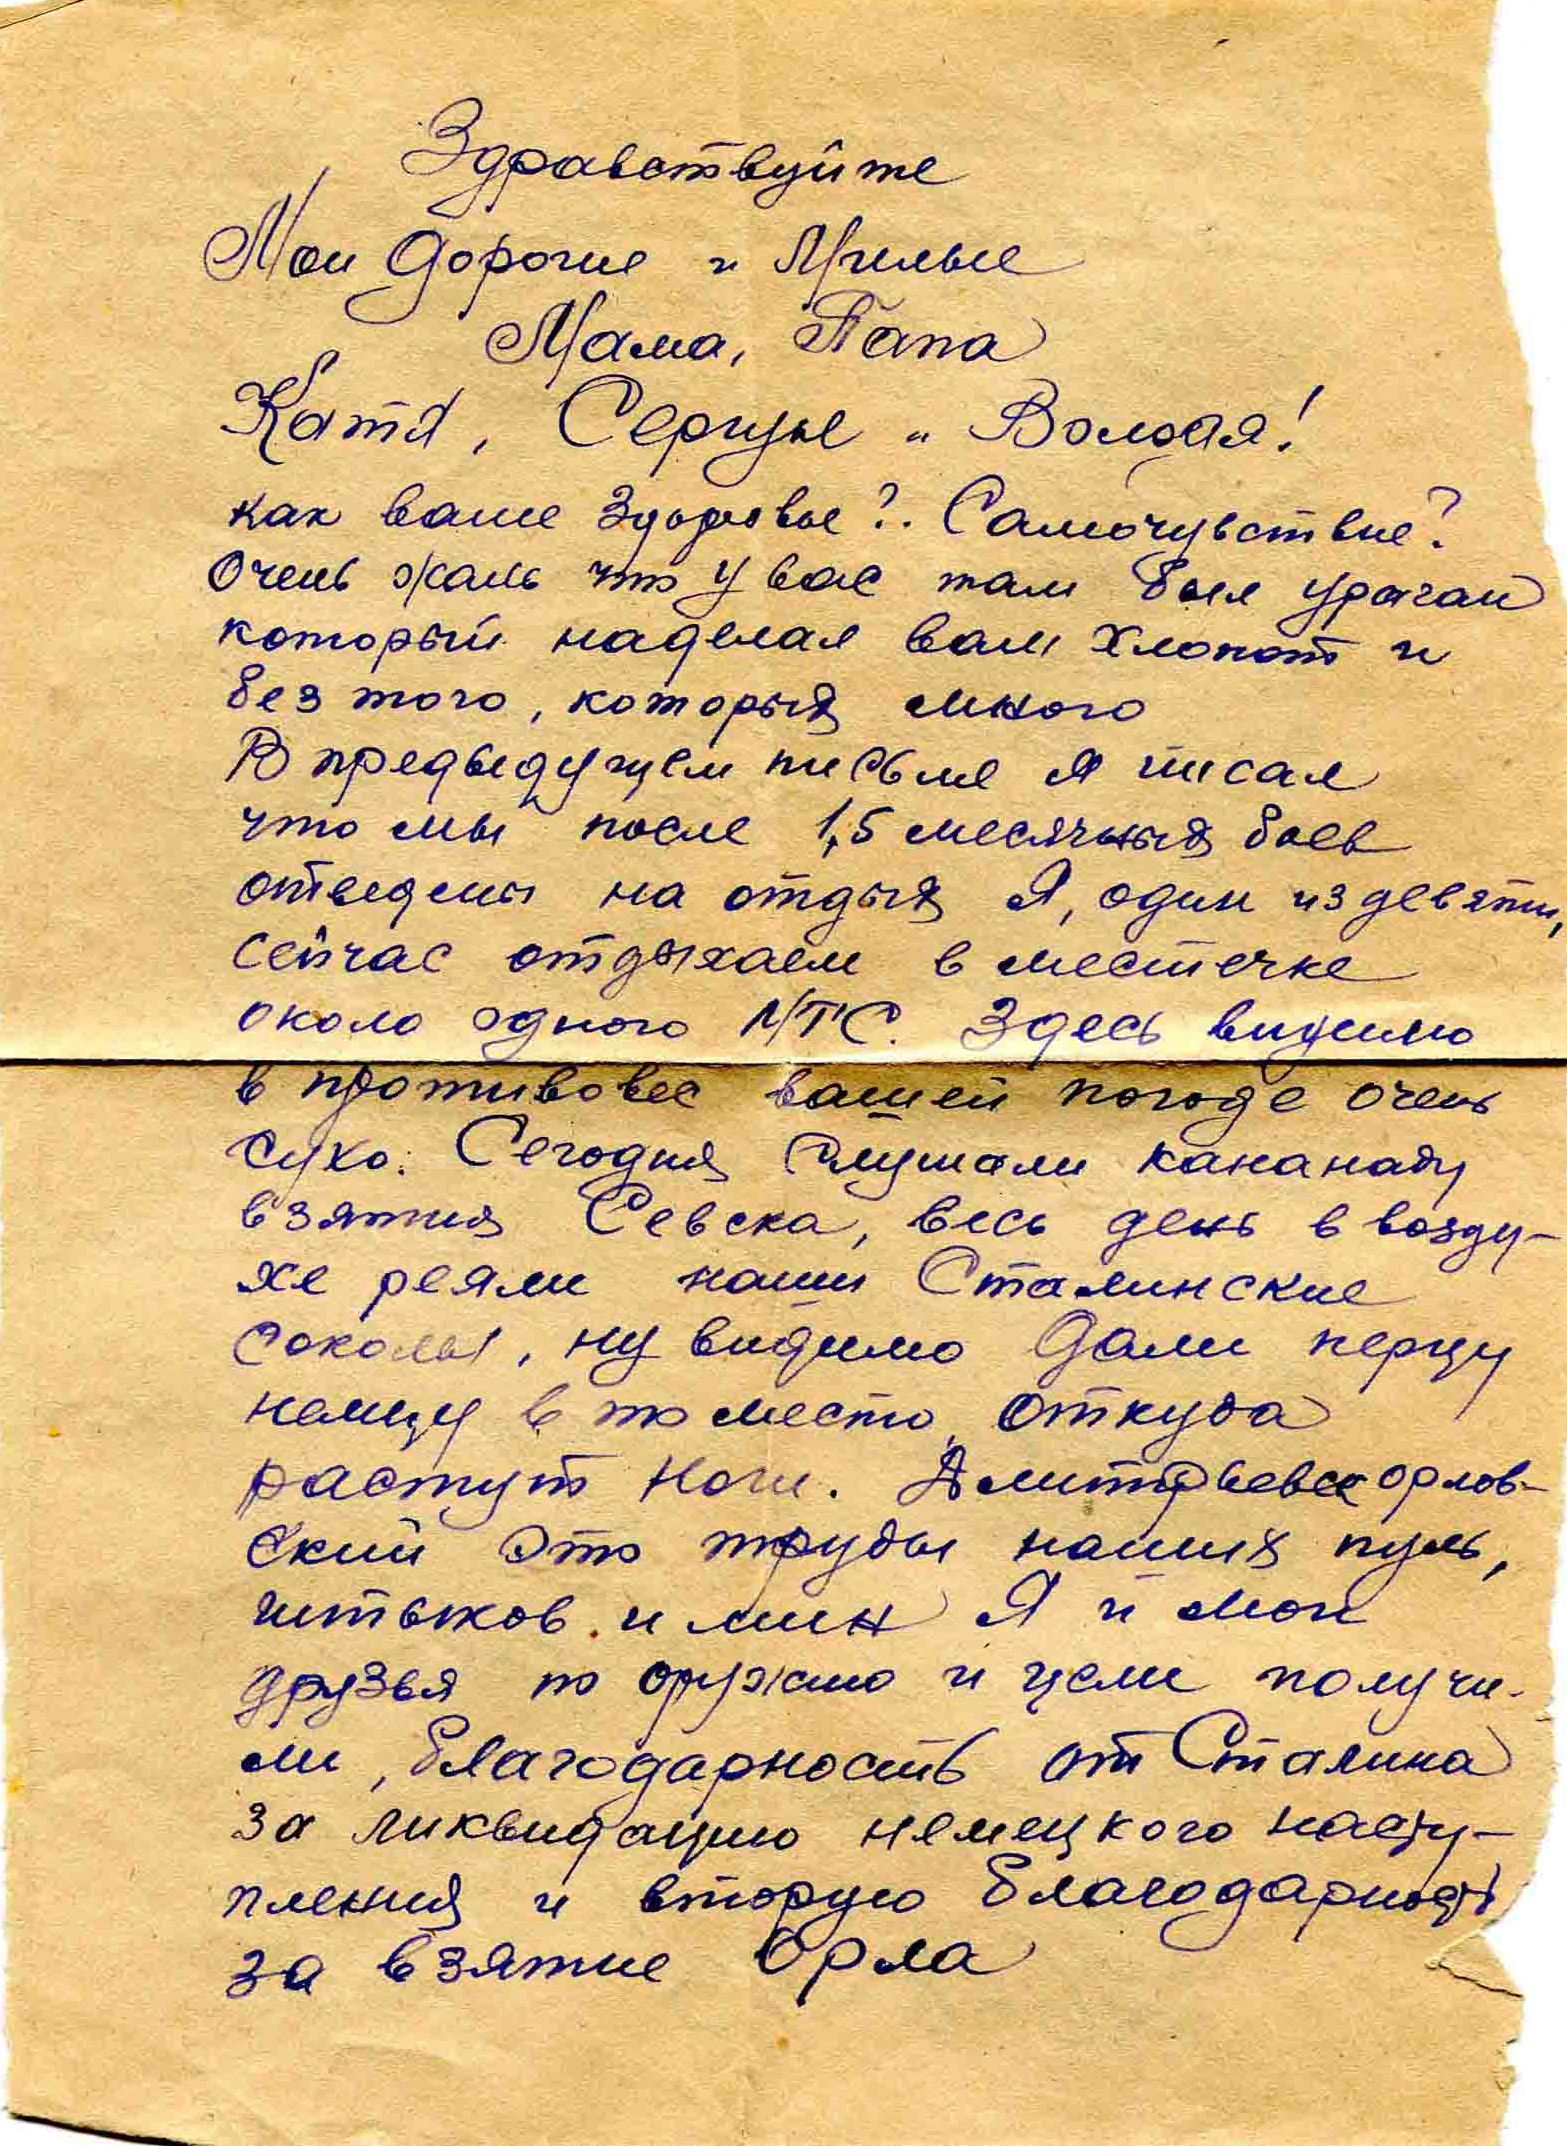 Здравствуйте
Мои Дорогие и Милые
Мама, Папа
Катя, Сергуне и Володя!
как ваше Здоровье?. Самочувствие?
Очень жаль что у вас там был ураган
который наделал вам хлопот и
без того, которых много
В предыдущем письме я писал
что мы после 1,5 месячных боев
отведены на отдых Я, один из девяти,
сейчас отдыхаем в местечке
около одного МТС. Здесь видимо
в противовес вашей погоде очень
сухо. Сегодня слушали кананаду
взятия Севска, весь день в возду-
хе реяли наши Сталинские
соколы, ну видимо дали перцу
немцу в то место, откуда
растут ноги. Дмитрьевск орлов-
ский это труды наших пуль,
штыков и мин Я и мои
друзья по оружию и цели получи-
ли, благодарность от Сталина
за ликвидацию немецкого насту-
пления и вторую благодарность
за взятие Орла